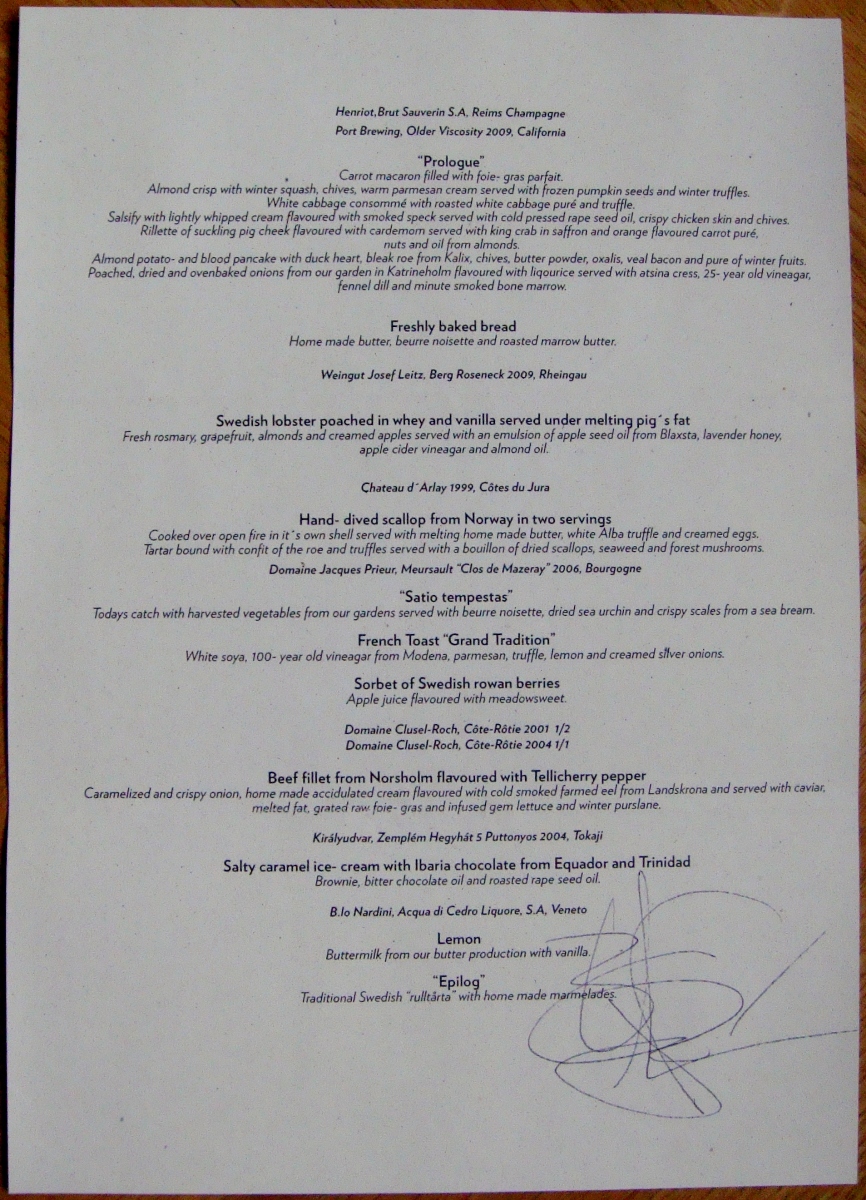 Henriot,Brut Sauverin S.A, Reims Champagne
Port Brewing, Older Viscosity 2009, California
"Prologue"
Carrot macaron filled with foie- gras parfait.
Almond crisp with winter squash, chives, warm parmesan cream served with frozen pumpkin seeds and winter truffles.
White cabbage consommé with roasted white cabbage puré and truffle.
Salsify with lightly whipped cream flavoured with smoked speck served with cold pressed rape seed oil, crispy chicken skin and chives.
Rillette of suckling pig cheek flavoured with cardemom served with king crab in saffron and orange flavoured carrot puré,
nuts and oil from almonds.
Almond potato- and blood pancake with duck heart, bleak roe from Kalix, chives, butter powder, oxalis, veal bacon and pure of winter fruits.
Poached, dried and ovenbaked onions from our garden in Katrineholm flavoured with liqourice served with atsina cress, 25- year old vineagar,
fennel dill and minute smoked bone marrow.
Freshly baked bread
Home made butter, beurre noisette and roasted marrow butter.
Weingut Josef Leitz, Berg Roseneck 2009, Rheingau
Swedish lobster poached in whey and vanilla served under melting pig´s fat
Fresh rosmary, grapefruit, almonds and creamed apples served with an emulsion of apple seed oil from Blaxsta, lavender honey,
apple cider vineagar and almond oil.
Chateau d´Arlay 1999, Côtes du Jura
Hand- dived scallop from Norway in two servings
Cooked over open fire in it´s own shell served with melting home made butter, white Alba truffle and creamed eggs.
Tartar bound with confit of the roe and truffles served with a bouillon of dried scallops, seaweed and forest mushrooms.
Domaine Jacques Prieur, Meursault "Clos de Mazeray" 2006, Bourgogne
"Satio tempestas"
Todays catch with harvested vegetables from our gardens served with beurre noisette, dried sea urchin and crispy scales from a sea bream.
French Toast "Grand Tradition"
White soya, 100- year old vineagar from Modena, parmesan, truffle, lemon and creamed silver onions.
Sorbet of Swedish rowan berries
Apple juice flavoured with meadowsweet.
Domaine Clusel-Roch, Côte-Rôtie 2001 1/2
Domaine Clusel-Roch, Côte-Rôtie 2004 1/1
Beef fillet from Norsholm flavoured with Tellicherry pepper
Caramelized and crispy onion, home made accidulated cream flavoured with cold smoked farmed eel from Landskrona and served with caviar,
melted fat, grated raw foie- gras and infused gem lettuce and winter purslane.
Királyudvar, Zemplém Hegyhát 5 Puttonyos 2004, Tokaji
Salty caramel ice- cream with Ibaria chocolate from Equador and Trinidad
Brownie, bitter chocolate oil and roasted rape seed oil.
B.lo Nardini, Acqua di Cedro Liquore, S.A, Veneto
Lemon
Buttermilk from our butter production with vanilla.
"Epilog"
Traditional Swedish "rulltårta" with home made marmelades.